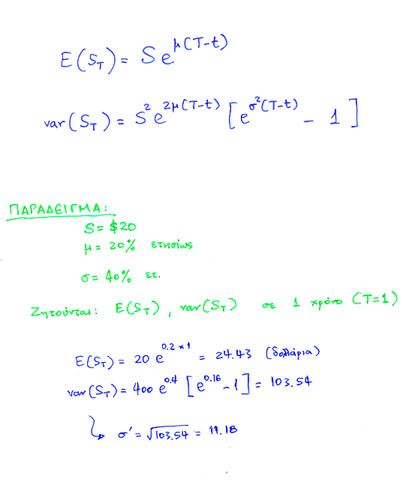 E(S_T) = S e^{μ(T-t)}
var(S_T) = S² e^{2μ(T-t)} [e^{σ²(T-t)} - 1]
ΠΑΡΑΔΕΙΓΜΑ:
S = $20
μ = 20% ετησίως
σ = 40% ετ.
Ζητούνται: E(S_T), var(S_T) σε 1 χρόνο (T=1)
E(S_T) = 20 e^{0.2 × 1} = 24.43 (δολάρια)
var(S_T) = 400 e^{0.4} [e^{0.16} - 1] = 103.54
↳ σ' = √103.54 = 11.18